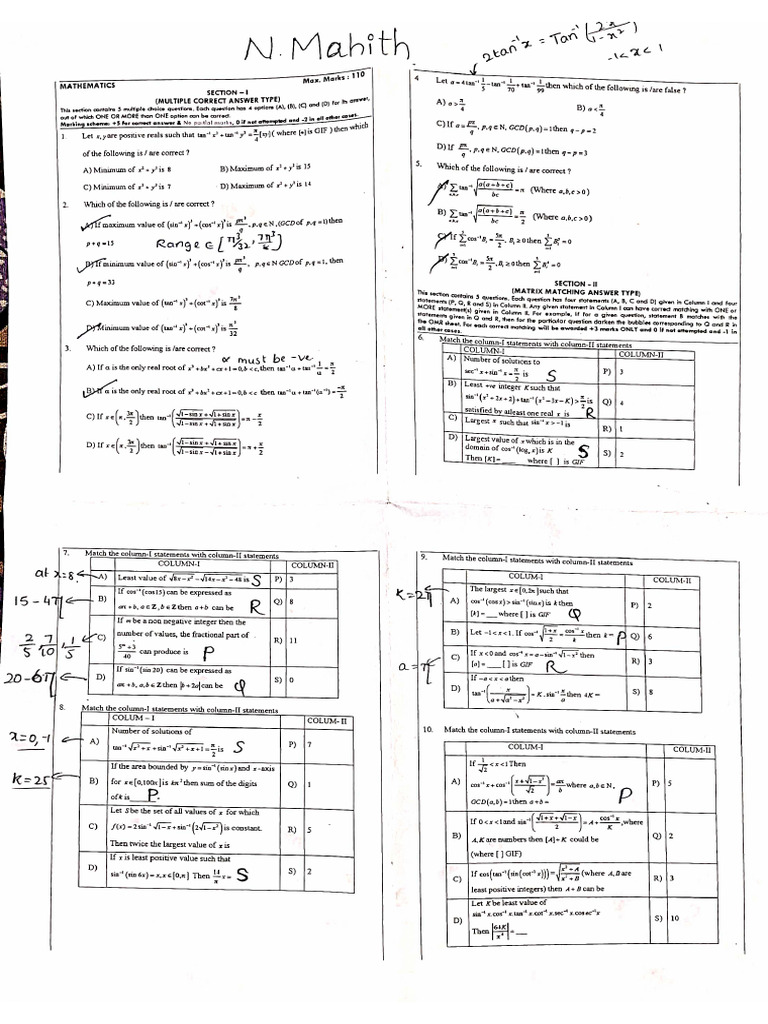 N. Mahith
2tan⁻¹x = Tan⁻¹(2x/1-x²)
-1<x<1
MATHEMATICS Max. Marks : 110
SECTION – I
(MULTIPLE CORRECT ANSWER TYPE)
This section contains 5 multiple choice questions. Each question has 4 options (A), (B), (C) and (D) for its answer,
out of which ONE OR MORE than ONE option can be correct.
Marking scheme: +5 for correct answer & No partial marks, 0 if not attempted and -2 in all other cases.
1. Let x, y are positive reals such that tan⁻¹ x² + tan⁻¹ y² = π/4 [xy] ( where [•] is GIF ) then which
of the following is / are correct ?
A) Minimum of x² + y² is 8 B) Maximum of x² + y² is 15
C) Minimum of x² + y² is 7 D) Maximum of x² + y² is 14
2. Which of the following is / are correct ?
A) If maximum value of (sin⁻¹ x)³ + (cos⁻¹ x)³ is pπ³/q, p,q∈N, (GCD of p,q=1) then
p + q = 15 Range ∈ [π³/32, 7π³/8]
B) If minimum value of (sin⁻¹ x)³ + (cos⁻¹ x)³ is pπ³/q, p,q∈N GCD of p,q = 1, then
p + q = 33
C) Maximum value of (tan⁻¹ x)³ + (cot⁻¹ x)³ is 7π³/8
D) Minimum value of (tan⁻¹ x)³ + (cot⁻¹ x)³ is π³/32
3. Which of the following is / are correct ?
α must be -ve
A) If α is the only real root of x³ + bx² + cx + 1 = 0, b < c, then tan⁻¹ α + tan⁻¹ 1/α = π/2
B) If α is the only real root of x³ + bx² + cx + 1 = 0, b < c, then tan⁻¹ α + tan⁻¹(α⁻¹) = -π/2
C) If x∈(π, 3π/2) then tan⁻¹(√1-sin x + √1+sin x / √1-sin x - √1+sin x) = π - x/2
D) If x∈(π, 3π/2) then tan⁻¹(√1-sin x + √1+sin x / √1-sin x - √1+sin x) = π + x/2
4 Let a = 4tan⁻¹ 1/5 - tan⁻¹ 1/70 + tan⁻¹ 1/99 then which of the following is /are false ?
A) a > π/4 B) a < π/4
C) If a = pπ/q, p,q∈N, GCD(p,q)=1 then q - p = 2
D) If pπ/q, p,q∈N, GCD(p,q)=1 then q - p = 3
5. Which of the following is / are correct ?
A) Σ tan⁻¹ √a(a+b+c)/bc = π (Where a,b,c > 0)
B) Σ tan⁻¹ √a(a+b+c)/bc = π/2 (Where a,b,c > 0)
SECTION – II
(MATRIX MATCHING ANSWER TYPE)
This section contains 5 questions. Each question has four statements (A, B, C and D) given in Column I and four
statements (P, Q, R and S) in Column II. Any given statement in Column I can have correct matching with ONE or
MORE statement(s) given in Column II. For example, if for a given question, statement B matches with the
statements given in Q and R, then for the particular question darken the bubbles corresponding to Q and R in
the OMR sheet. For each correct matching will be awarded +3 marks ONLY and 0 if not attempted and -1 in
all other cases.
6. Match the column-I statements with column-II statements
COLUMN-I COLUMN-II
A) Number of solutions to
sec⁻¹ x + sin⁻¹ x = π/2 is S P) 3
B) Least +ve integer K such that
sin⁻¹(x² + 2x + 2) + tan⁻¹(x² - 3x - K) > π/2 is Q) 4
satisfied by atleast one real x is R
C) Largest x such that sin⁻¹ x > -1 is R) 1
D) Largest value of x which is in the
domain of cos⁻¹(log₂ x) is K S
Then [K] = ___ where [ ] is GIF S) 2
7. Match the column-I statements with column-II statements
COLUMN-I COLUMN-II
at x=8 A) Least value of √8x - x² - √14x - x² - 48 is S P) 3
15-4π B) If cos⁻¹(cos15) can be expressed as
aπ + b, a∈Z, b∈Z then a + b can be R Q) 8
2/5, 7/10, 1/5 C) If m be a non negative integer then the
number of values, the fractional part of
5ᵐ + 3/40 can produce is P R) 11
20-6π D) If sin⁻¹(sin 20) can be expressed as
aπ + b, a,b∈Z then |b + 2a| can be Q S) 0
8. Match the column-I statements with column-II statements
COLUM – I COLUM- II
x=0,-1 A) Number of solutions of
tan⁻¹ √x² + x + sin⁻¹ √x² + x + 1 = π/2 is S P) 7
k=25 B) If the area bounded by y = sin⁻¹(sin x) and x-axis
for x∈[0,100π] is kπ² then sum of the digits Q) 1
of k is ___ P
C) Let S be the set of all values of x for which
f(x) = 2sin⁻¹ √1-x + sin⁻¹(2√1-x²) is constant. R) 5
Then twice the largest value of x is
D) If x is least positive value such that
sin⁻¹(sin 6x) = x, x∈[0,π] Then 14/π x = S S) 2
9. Match the column-I statements with column-II statements
COLUM-I COLUM-II
k=2π A) The largest x∈[0,2π] such that
cos⁻¹(cos x) > sin⁻¹(sin x) is k then P) 2
[k] = ___ where [ ] is GIF Q
B) Let -1 < x < 1. If cos⁻¹ √1+x/2 = cos⁻¹ x/k then k = P Q) 6
a=π C) If x < 0 and cos⁻¹ x = a - sin⁻¹ √1-x² then
[a] = ___ [ ] is GIF R R) 3
D) If -a < x < a then
tan⁻¹(x / a + √a² - x²) = K. sin⁻¹ x/a then 4K = S) 8
10. Match the column-I statements with column-II statements
COLUM-I COLUM-II
A) If 1/√2 < x < 1 Then
cos⁻¹ x + cos⁻¹(x + √1-x² / √2) = aπ/b where a,b∈N, P) 5
GCD(a,b)=1 then a + b = P
B) If 0 < x < 1 and sin⁻¹(√1+x + √1-x / 2) = A + cos⁻¹ x / K, where
A, K are numbers then [A] + K could be Q) 2
(where [ ] GIF)
C) If cos(tan⁻¹(sin(cot⁻¹ x))) = √x² + A / x² + B (where A, B are R) 3
least positive integers) then A + B can be
D) Let K be least value of
sin⁻¹ x. cos⁻¹ x. tan⁻¹ x. cot⁻¹ x. sec⁻¹ x. cosec⁻¹ x S) 10
Then |64K/π⁶| = ___